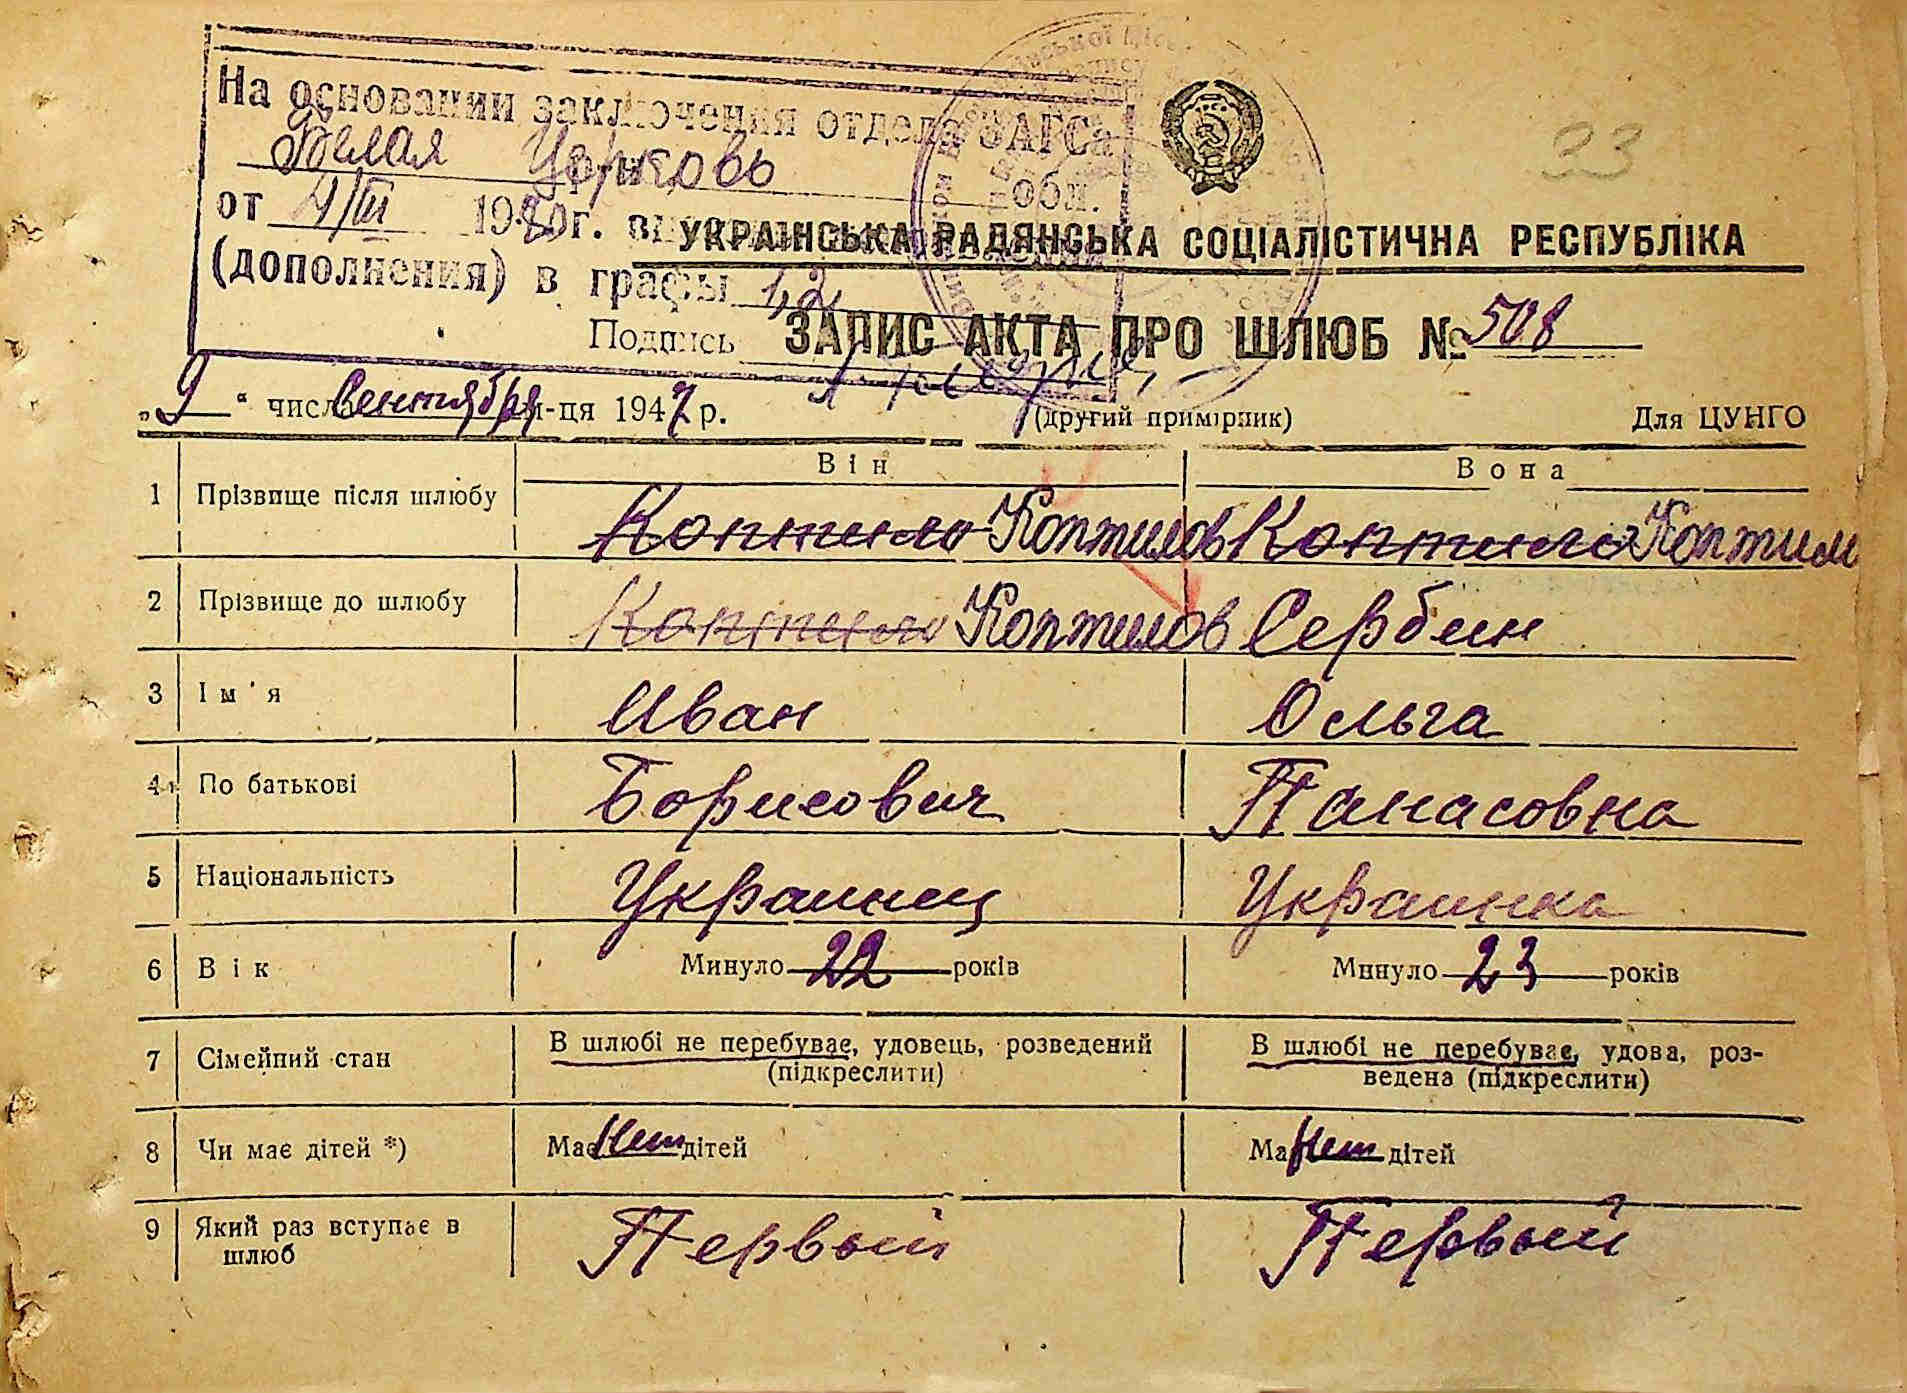 На основании заключения отдела ЗАГСа
Белая Церковь
обл.
от 4/III 1980г.
(дополнения) в графы 1,2
Подпись
33
УКРАЇНСЬКА РАДЯНСЬКА СОЦІАЛІСТИЧНА РЕСПУБЛІКА
ЗАПИС АКТА ПРО ШЛЮБ № 508
„9" числа Сентября м-ця 1947 р.
(другий примірник) Для ЦУНГО
Він Вона
1 Прізвище після шлюбу Коптило Коптилов Коптило Коптилов
2 Прізвище до шлюбу Коптило Коптилов Сербин
3 Ім'я Иван Ольга
4 По батькові Борисович Панасовна
5 Національність Украинец Украинка
6 Вік Минуло 22 років Минуло 23 років
7 Сімейний стан В шлюбі не перебуває, удовець, розведений В шлюбі не перебуває, удова, роз-
(підкреслити) ведена (підкреслити)
8 Чи має дітей *) Має Нет дітей Має Нет дітей
9 Який раз вступає в Первый Первый
шлюб